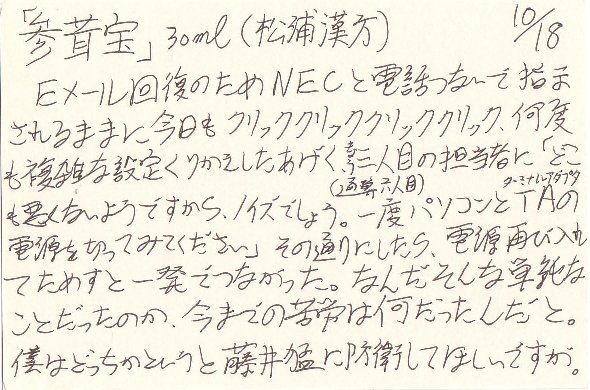 「参茸宝」30ml(松浦漢方) 10/18
Eメール回復のためNECと電話つないで指示
されるままに今日もクリッククリッククリッククリック、何度
も複雑な設定くりかえしたあげく二人目の担当者に「どこ
(通算六人目) ターミナルアダプタ
も悪くないようですから、ノイズでしょう。一度パソコンとTAの
電源を切ってみてください」その通りにしたら、電源再び入れ
てためすと一発でつながった。なんだそんな単純な
ことだったのか、今までの苦労は何だったんだと。
僕はどっちかというと藤井猛に防衛してほしいですが。